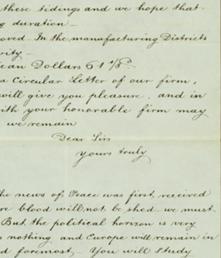 these tidings and we hope that
duration –
oved. In the manufacturing Districts
rity –
ean Dollars 61
a Circular Letter of our firm,
will give you pleasure, and in
ith your honorable firm may
we remain
Dear Sir
yours truly
he news of Peace was first received
re blood will not be shed we must
But the political horizon is very
nothing and Europe will remain in
d foremost. You will study